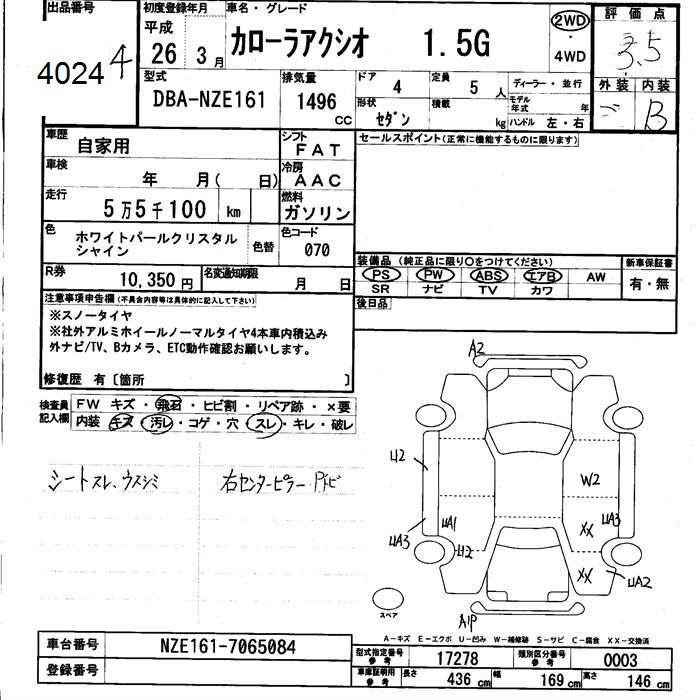 出品番号 初度登録年月 車名・グレード 評価点
4024 4 平成 26 3月 カローラアクシオ 1.5G 2WD 4WD 3.5
外装 内装
B
型式 排気量 ドア 4 定員 5人 ディーラー・並行
DBA-NZE161 1496 cc 形状 セダン 積載 kg モデル年式 年 ハンドル 左・右
車歴 自家用 シフト FAT セールスポイント(正常に機能するものに限ります)
車検 年 月( 日) 冷房 AAC
走行 5万5千100 km 燃料 ガソリン
色 ホワイトパールクリスタル 色替 色コード 070
シャイン
装備品(純正品に限り○をつけてください) 新車保証書
R券 10,350円 名変通知期限 月 日 PS PW ABS エアB AW 有・無
SR ナビ TV カワ
注意事項申告欄(不具合内容等は具体的に記入して下さい) 後日品
※スノータイヤ
※社外アルミホイールノーマルタイヤ4本車内積込み
外ナビ/TV、Bカメラ、ETC動作確認お願いします。
修復歴 有〔箇所 〕
検査員記入欄 FW キズ・飛石・ヒビ割・リペア跡・×要
内装 キズ・汚レ・コゲ・穴・スレ・キレ・破レ
シートスレ、ウスシミ 右センターピラー
A2
U2 W2
UA1 XX UA3
UA3 U2
XX UA2
スペア A1P
A-キズ E-エクボ U-凹み W-補修跡 S-サビ C-腐食 XX-交換済
車台番号 NZE161-7065084
型式指定番号 参考 17278 類別区分番号 参考 0003
登録番号 車庫証明用 参考 長さ 436cm 幅 169cm 高さ 146cm